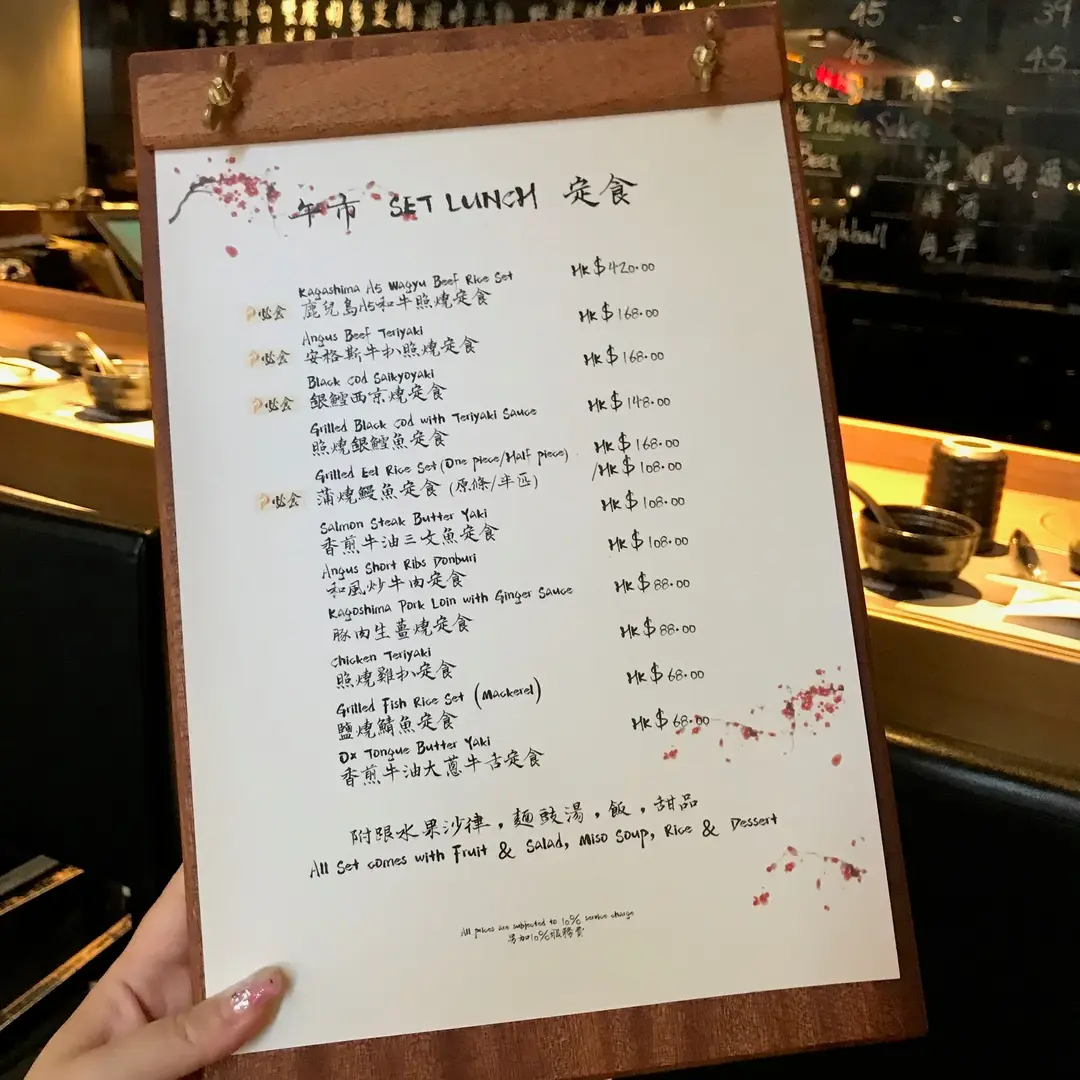 午市 SET LUNCH 定食
Kagashima A5 Wagyu Beef Rice Set HK$420.00
必食 鹿兒島A5和牛照燒定食
Angus Beef Teriyaki HK$168.00
必食 安格斯牛扒照燒定食
Black Cod Saikyoyaki HK$168.00
必食 銀鱈西京燒定食
Grilled Black Cod with Teriyaki Sauce HK$148.00
照燒銀鱈魚定食
Grilled Eel Rice Set (One piece/Half piece) HK$168.00
/HK$108.00
必食 蒲燒鰻魚定食 (原條/半匹)
Salmon Steak Butter Yaki HK$108.00
香煎牛油三文魚定食
Angus Short Ribs Donburi HK$108.00
和風炒牛肉定食
Kagoshima Pork Loin with Ginger Sauce HK$88.00
豚肉生薑燒定食
Chicken Teriyaki HK$88.00
照燒雞扒定食
Grilled Fish Rice Set (Mackerel) HK$68.00
鹽燒鯖魚定食
Ox Tongue Butter Yaki HK$68.00
香煎牛油大蔥牛舌定食
附跟水果沙律，麵豉湯，飯，甜品
All Set comes with Fruit & Salad, Miso Soup, Rice & Dessert
All prices are subjected to 10% service charge
另加10%服務費
45 39
45 45
House Sake
Beer
Highball